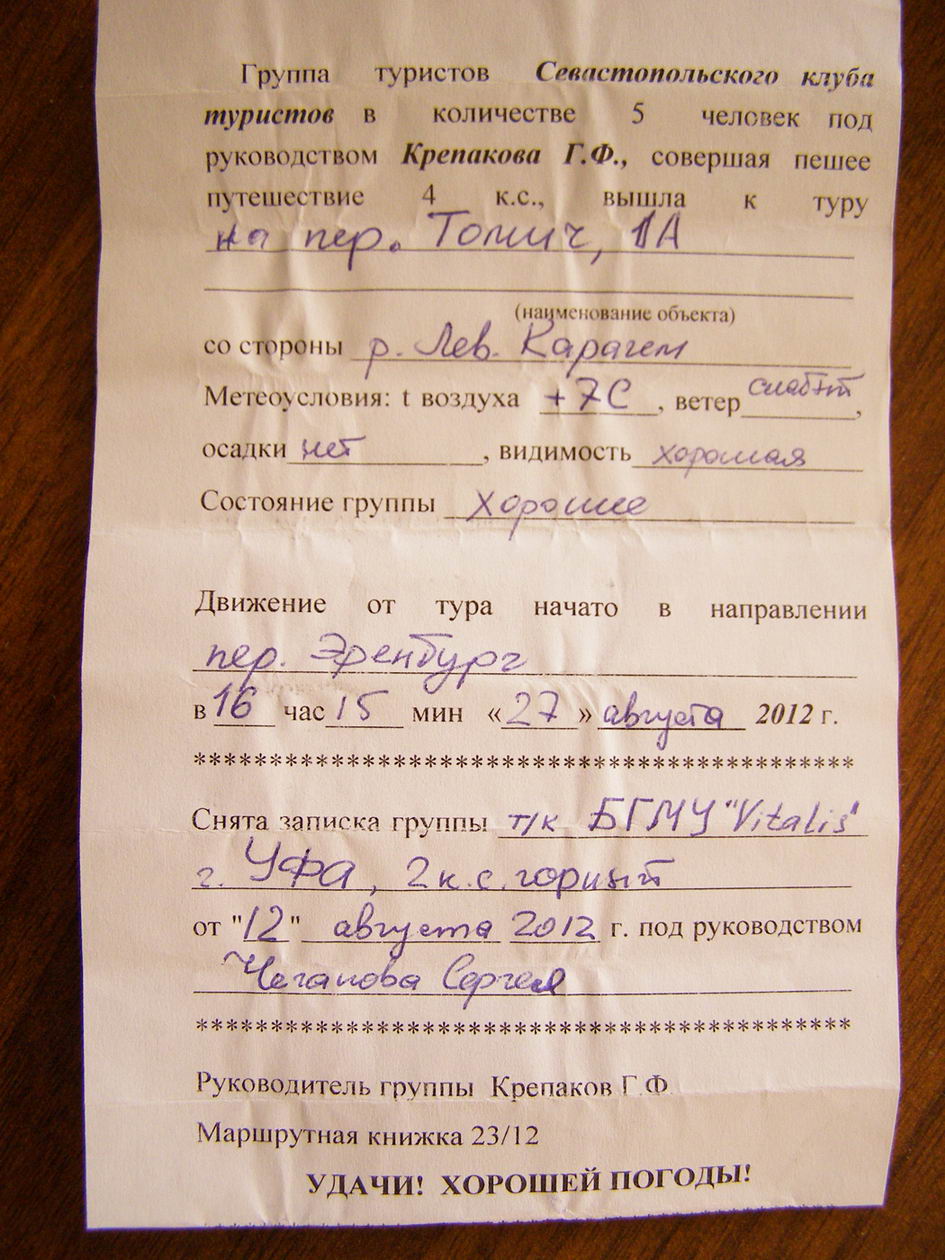 Группа туристов Севастопольского клуба
туристов в количестве 5 человек под
руководством Крепакова Г.Ф., совершая пешее
путешествие 4 к.с., вышла к туру
на пер. Томич, 1А
(наименование объекта)
со стороны р. Лев. Карагем
Метеоусловия: t воздуха +7С, ветер слабый,
осадки нет, видимость хорошая
Состояние группы хорошие
Движение от тура начато в направлении
пер. Эренбург
в 16 час 15 мин «27» августа 2012 г.
********************************************
Снята записка группы т/к БГМУ "Vitalis"
г. Уфа, 2 к.с. горный
от "12" августа 2012 г. под руководством
Чеганова Сергея
********************************************
Руководитель группы Крепаков Г.Ф.
Маршрутная книжка 23/12
УДАЧИ! ХОРОШЕЙ ПОГОДЫ!